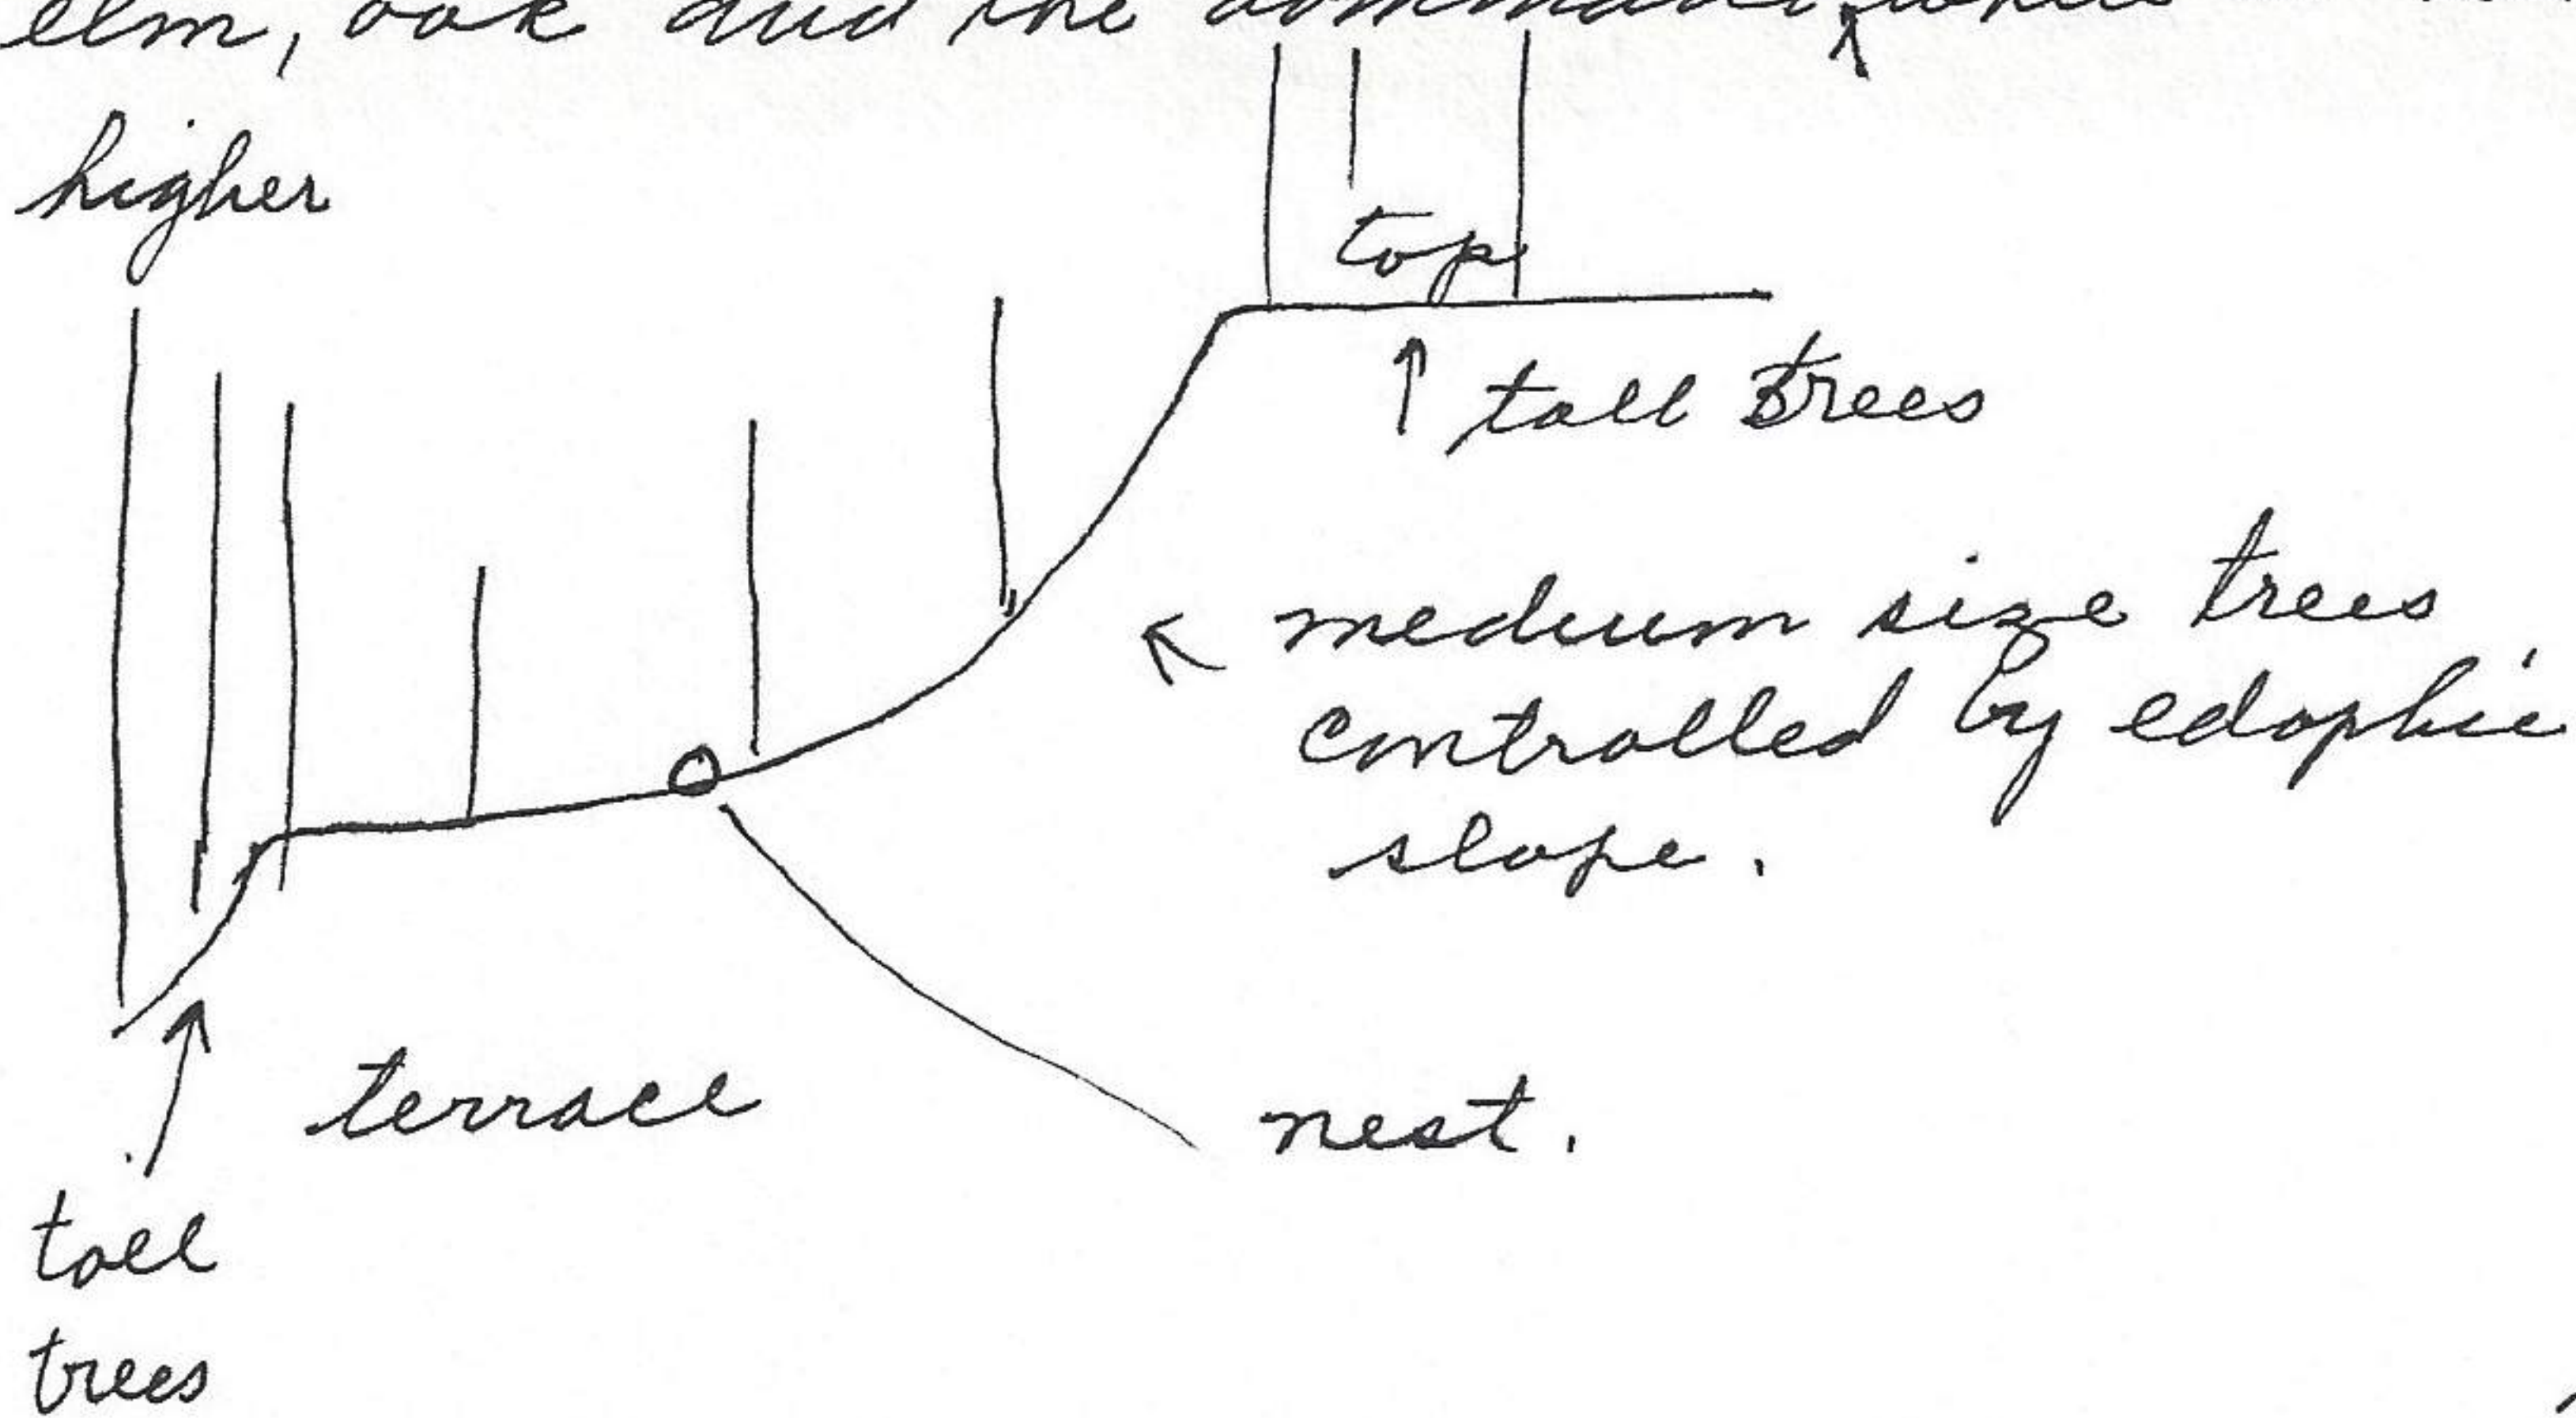 elm, oak and the dominant
higher
top
↑ tall trees
← medium size trees
controlled by edaphic
slope.
terrace
nest.
tall
trees